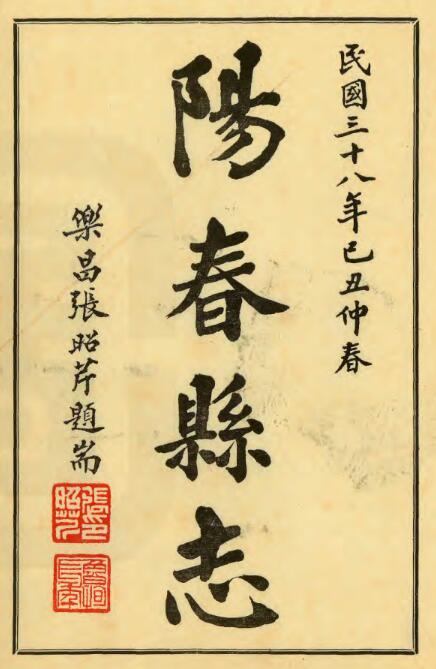 民國三十八年己丑仲春
陽春縣志
樂昌張昭芹題耑
張昭芹印